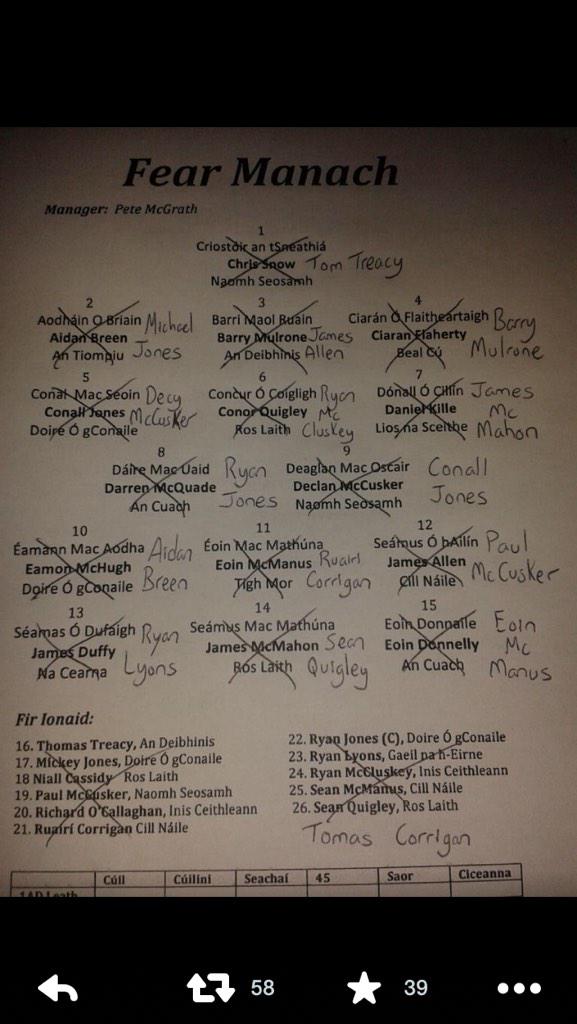 Fear Manach
Manager: Pete McGrath
1
Criostóir an tSneathiá
Chris Snow Tom Treacy
Naomh Seosamh
2 3 4
Aodháin O Briain Michael Barri Maol Ruain Ciarán Ó Flaitheartaigh Barry
Aidan Breen Barry Mulrone James Ciaran Flaherty
An Tiomпiu Jones An Deibhinis Allen Beal Cú Mulrone
5 6 7
Conal Mac Seoin Decy Concur Ó Coigligh Ryan Dónall Ó Cillín James
Conall Jones McCusker Conor Quigley Mc Daniel Kille Mc
Doire Ó gConaile Ros Laith Cluskey Lios na Sceithe Mahon
8 9
Dáire Mac Uaid Ryan Deaglan Mac Oscair Conall
Darren McQuade Declan McCusker
An Cuach Jones Naomh Seosamh Jones
10 11 12
Éamann Mac Aodha Aidan Éoin Mac Mathúna Seámus Ó hAilín Paul
Eamon McHugh Eoin McManus Ruairi James Allen
Doire Ó gConaile Breen Tigh Mor Corrigan Cill Náile McCusker
13 14 15
Séamas Ó Dufaigh Ryan Seámus Mac Mathúna Eoin Donnaile Eoin
James Duffy James McMahon Sean Eoin Donnelly Mc
Na Cearna Lyons Ros Laith Quigley An Cuach Manus
Fir Ionaid:
16. Thomas Treacy, An Deibhinis
17. Mickey Jones, Doire Ó gConaile
18 Niall Cassidy Ros Laith
19. Paul McCusker, Naomh Seosamh
20. Richard O'Callaghan, Inis Ceithleann
21. Ruairí Corrigan Cill Náile
22. Ryan Jones (C), Doire Ó gConaile
23. Ryan Lyons, Gaeil na h-Eirne
24. Ryan McCluskey, Inis Ceithleann
25. Sean McManus, Cill Náile
26. Sean Quigley, Ros Laith
Tomas Corrigan
Cúil Cúilíní Seachaí 45 Saor Ciceanna
58 39